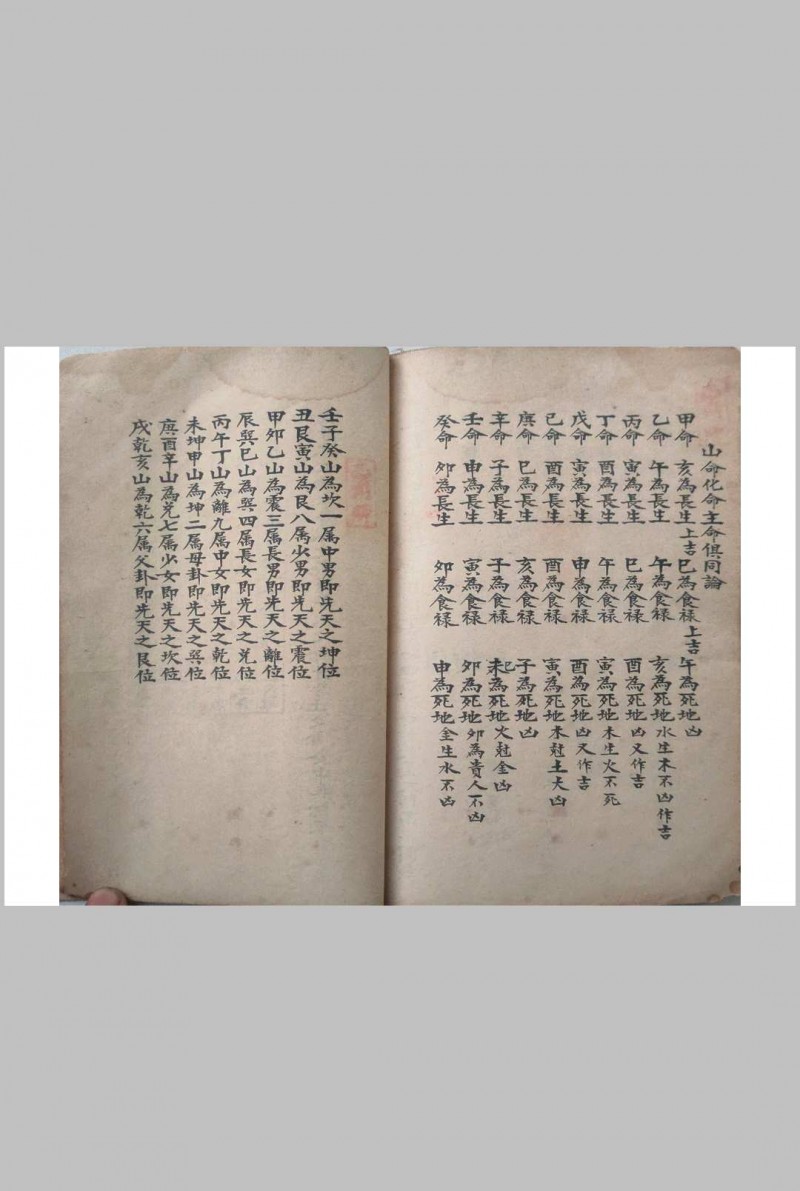 山命化命主命俱同論
甲命 亥為長生上吉 巳為食禄上吉 午為死地凶
乙命 午為長生 午為食禄 亥為死地水生木不凶作吉
丙命 寅為長生 巳為食禄 酉為死地凶又作吉
丁命 酉為長生 午為食禄 寅為死地木生火不死
戊命 寅為長生 申為食禄 酉為死地凶又作吉
己命 酉為長生 酉為食禄 寅為死地木尅土大凶
庚命 巳為長生 亥為食禄 子為死地凶
辛命 子為長生 子為食禄 為死地火尅金凶
壬命 申為長生 寅為食禄 卯為死地卯為貴人不凶
癸命 卯為長生 卯為食禄 申為死地金生水不凶
壬子癸山為坎一属中男即先天之坤位
丑艮寅山為艮八属少男即先天之震位
甲卯乙山為震三属長男即先天之離位
辰巽巳山為巽四属長女即先天之兑位
丙午丁山為離九属中女即先天之乾位
未坤申山為坤二属母卦即先天之巽位
庚酉辛山為兑七属少女即先天之坎位
戌乾亥山為乾六属父卦即先天之艮位